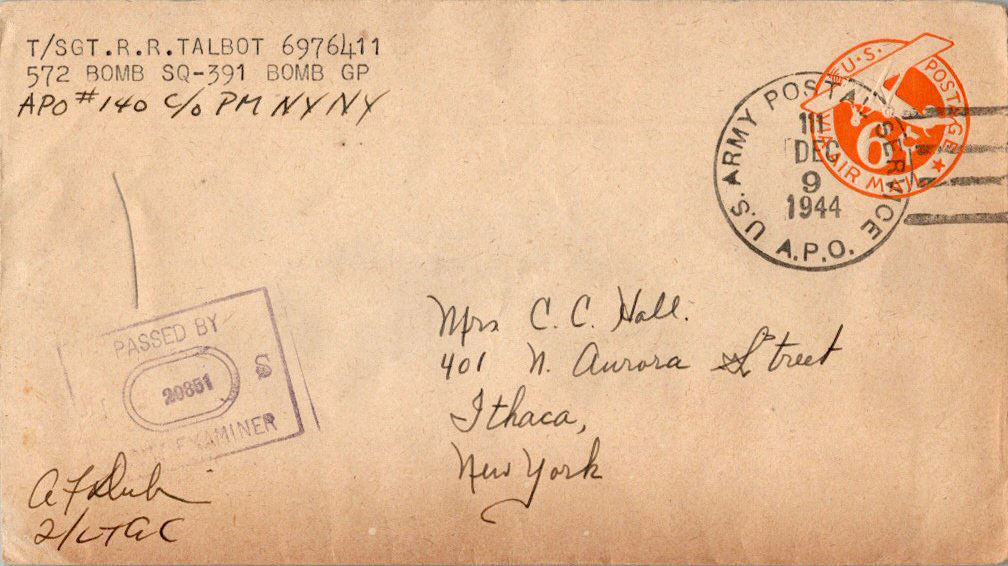 T/SGT.R.R.TALBOT 6976411
572 BOMB SQ-391 BOMB GP
APO #140 C/O PM NY NY
U.S. POSTAGE
VIA AIR MAIL
6
U.S. ARMY POSTAL SERVICE
DEC
9
1944
A.P.O.
Mrs C. C. Hall.
401 N. Aurora Street
Ithaca,
New York
PASSED BY
20851 S
EXAMINER
2/LT AC